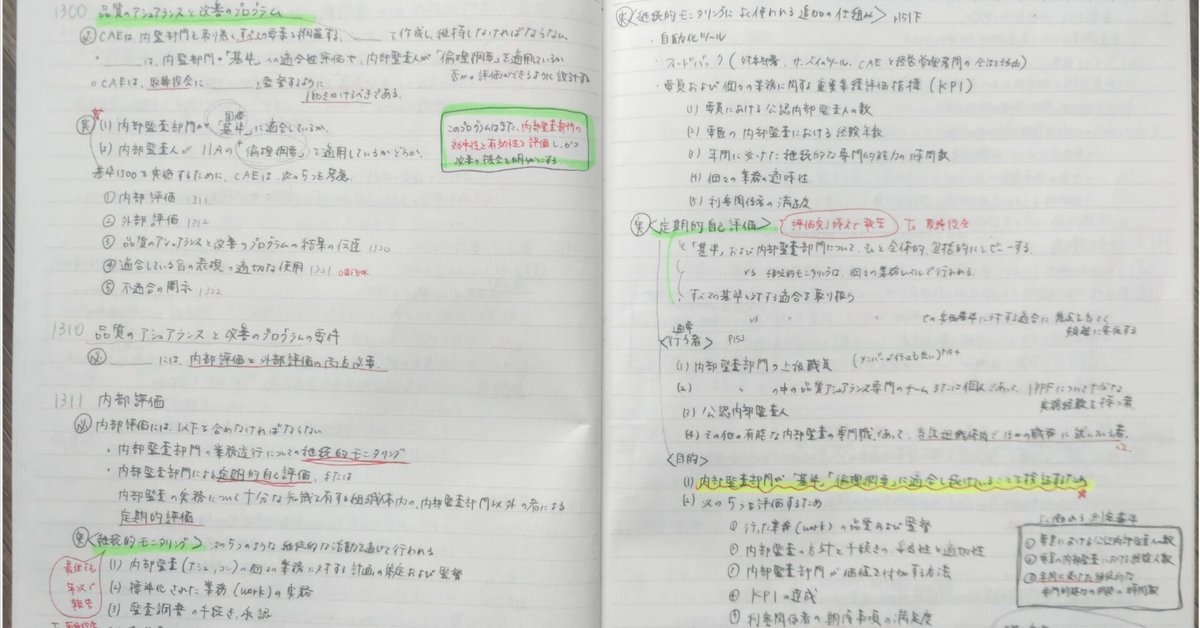 1300 品質のアシュアランスと改善のプログラム
必 CAEは内監部門を網羅する、 で作成し、維持しなければならない。
・ は、内監部門の「基準」への適合性評価や、内部監査人が「倫理綱要」を適用しているか
否かの評価ができるように設計する
○CAEは、取締役会に を監督するように
働きかけるべきである。
実 (1) 内部監査部門が「国際基準」に適合しているか。
(2) 内部監査人が IIAの「倫理綱要」を適用しているかどうか。
このプログラムはまた、内部監査部門の
効率性と有効性を評価し、かつ
改善の機会を明らかにする
基準1300を実施するために、CAEは、次の5つを考慮。
① 内部評価 1311
② 外部評価 1312
③ 品質のアシュアランスと改善のプログラムの結果の伝達 1320
④ 適合している旨の表現の適切な使用 1321
⑤ 不適合の開示 1322
1310 品質のアシュアランスと改善のプログラムの要件
必 には、内部評価と外部評価の両方必要。
1311 内部評価
必 内部評価には、以下を含めなければならない
・内部監査部門の業務遂行についての継続的モニタリング
・内部監査部門による定期的自己評価、または
内部監査の実務について十分な知識を有する組織体内の、内部監査部門以外の者による
定期的評価
実 <継続的モニタリング> 次の5つのような継続的な活動を通じて行われる
最低でも
年次で
報告
(1) 内部監査(アシュ,コン)の個々の業務に対する計画の策定および監督
(2) 標準化された業務(work)の実務
(3) 監査調書の手続き、承認
実 <継続的モニタリングによく使われる追加の仕組み> P151下
・自動化ツール
・フィードバック(対象部署、サーベイツール、CAEと経営管理者間の会話経由)
・要員および個々の業務に関する重要業績評価指標(KPI)
(1) 要員における公認内部監査人の数
(2) 要員の内部監査における経験年数
(3) 年間に受けた継続的な専門的能力の時間数
(4) 個々の業務の適時性
(5) 利害関係者の満足度
実 <定期的自己評価> 評価完了時点で報告 To 取締役会
「基準」および内部監査部門について、もっと全体的、包括的にレビューする
vs 継続的モニタリングは、個々の業務レベルで行われる。
すべての基準に対する適合を取り扱う
vs での実施基準に対する適合に焦点を当てて
頻繁に実施する
通常
<行う者> P153
(1) 内部監査部門の上級職員 (メンバーが行うも良い)
(2) 〃 の中の品質アシュアランス専門のチームまたは個人であって、IPPFについて十分な
実務経験を持つ者
(3) 公認内部監査人
(4) その他の有能な内部監査の専門職であって、当該組織体内でほかの職務に就いている者。
<目的>
(1) 内部監査部門が「基準」「倫理綱要」に適合し続けていることを検証するため
(2) 次の5つを評価するため
① 行った業務(work)の品質および監督
② 内部監査の方針と手続きの妥当性と適切性
③ 内部監査部門が価値を付加する方法
④ KPIの達成
⑤ 利害関係者の期待事項の満足度
① 要員における公認内部監査人の数
② 要員の内部監査における経験人数
③ 年間に受けた継続的な
専門的能力の開発の時間数